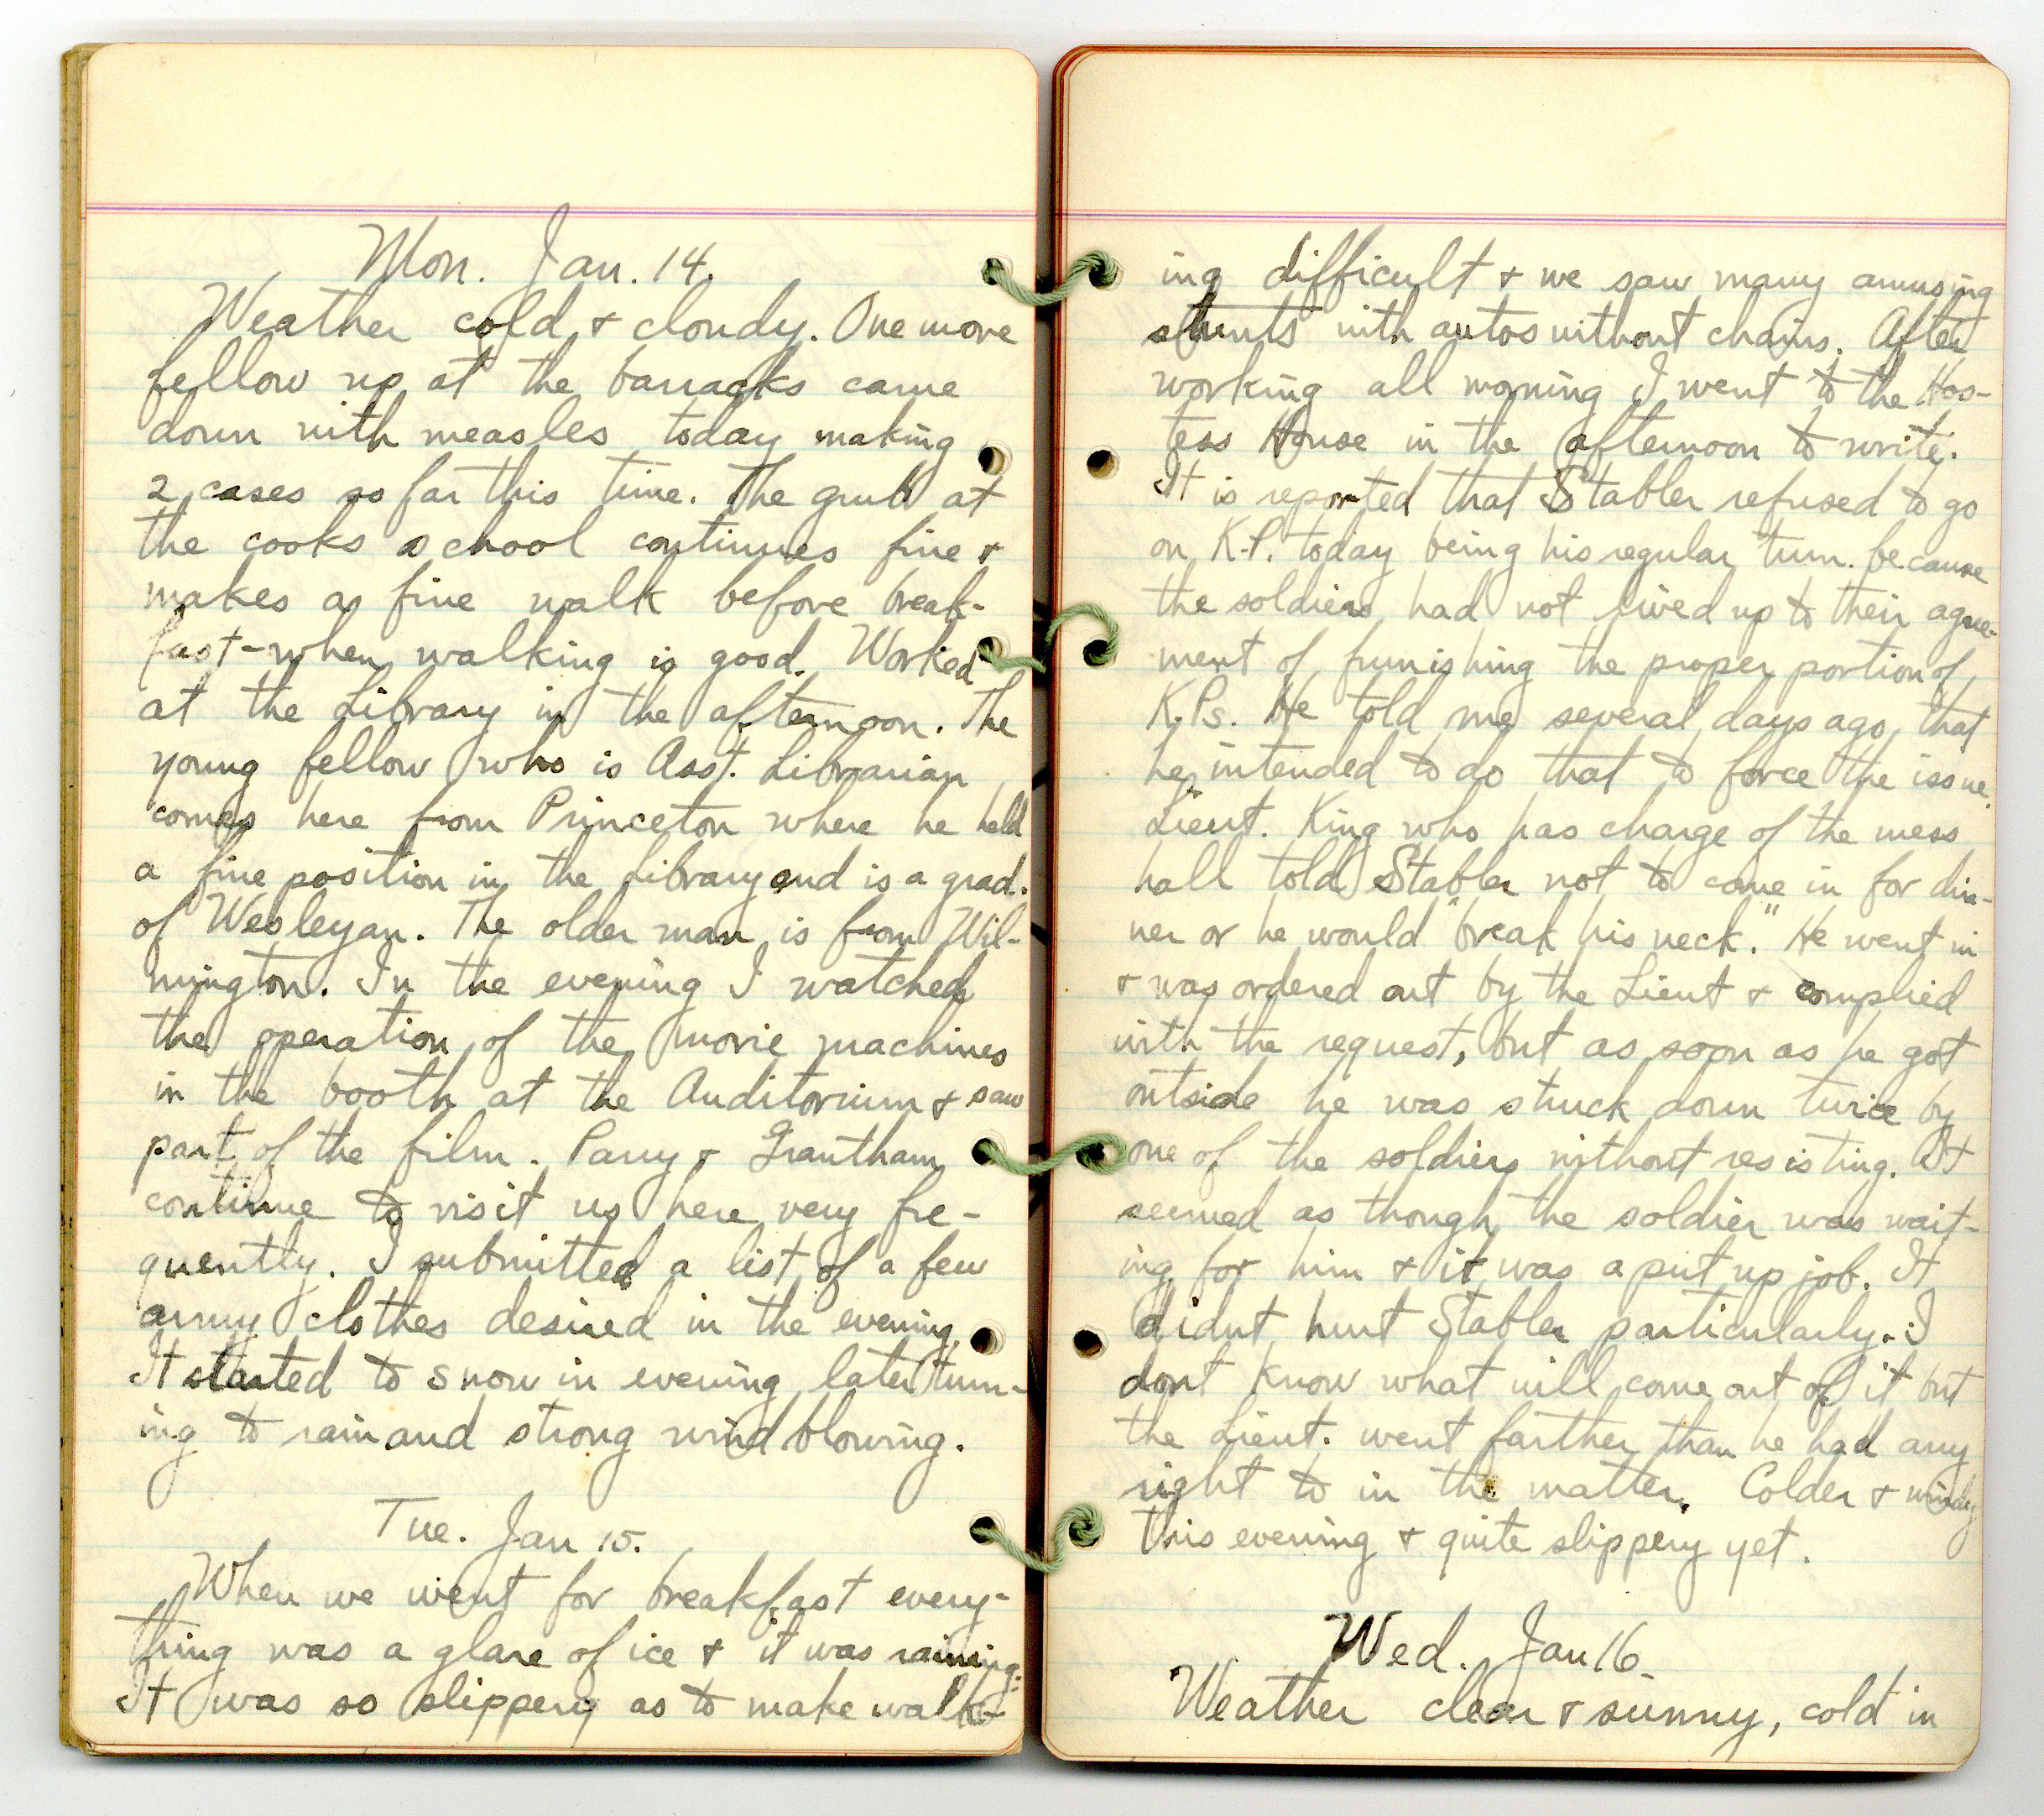 Mon. Jan. 14.
Weather cold & cloudy. One more
fellow up at the barracks came
down with measles today making
2 cases so far this time. The grub at
the cooks school continues fine &
makes a fine walk before break-
fast - when walking is good. Worked
at the Library in the afternoon. The
young fellow who is Asst. Librarian
comes here from Princeton where he held
a fine position in the Library and is a grad.
of Wesleyan. The older man is from Wil-
mington. In the evening I watched
the operation of the movie machines
in the booth at the Auditorium & saw
part of the film. Parry & Grantham
continue to visit us here very fre-
quently. I submitted a list of a few
army clothes desired in the evening.
It started to snow in evening later turn-
ing to rain and strong wind blowing.
Tue. Jan 15.
When we went for breakfast every-
thing was a glare of ice & it was raining.
It was so slippery as to make walk-
ing difficult & we saw many amusing
stunts with autos without chains. After
working all morning I went to the Hos-
tess House in the afternoon to write.
It is reported that Stabler refused to go
on K.P. today being his regular turn. because
the soldiers had not lived up to their agree-
ment of furnishing the proper portion of
K.Ps. He told me several days ago that
he intended to do that to force the issue.
Lieut. King who has charge of the mess
hall told Stabler not to come in for din-
ner or he would "break his neck." He went in
& was ordered out by the Lieut & complied
with the request, but as soon as he got
outside he was struck down twice by
one of the soldiers without resisting. It
seemed as though the soldier was wait-
ing for him & it was a put up job. It
didnt hurt Stabler particularly. I
dont know what will come out of it but
the Lieut. went farther than he had any
right to in the matter. Colder & windy
this evening & quite slippery yet.
Wed. Jan 16.
Weather clear & sunny, cold in